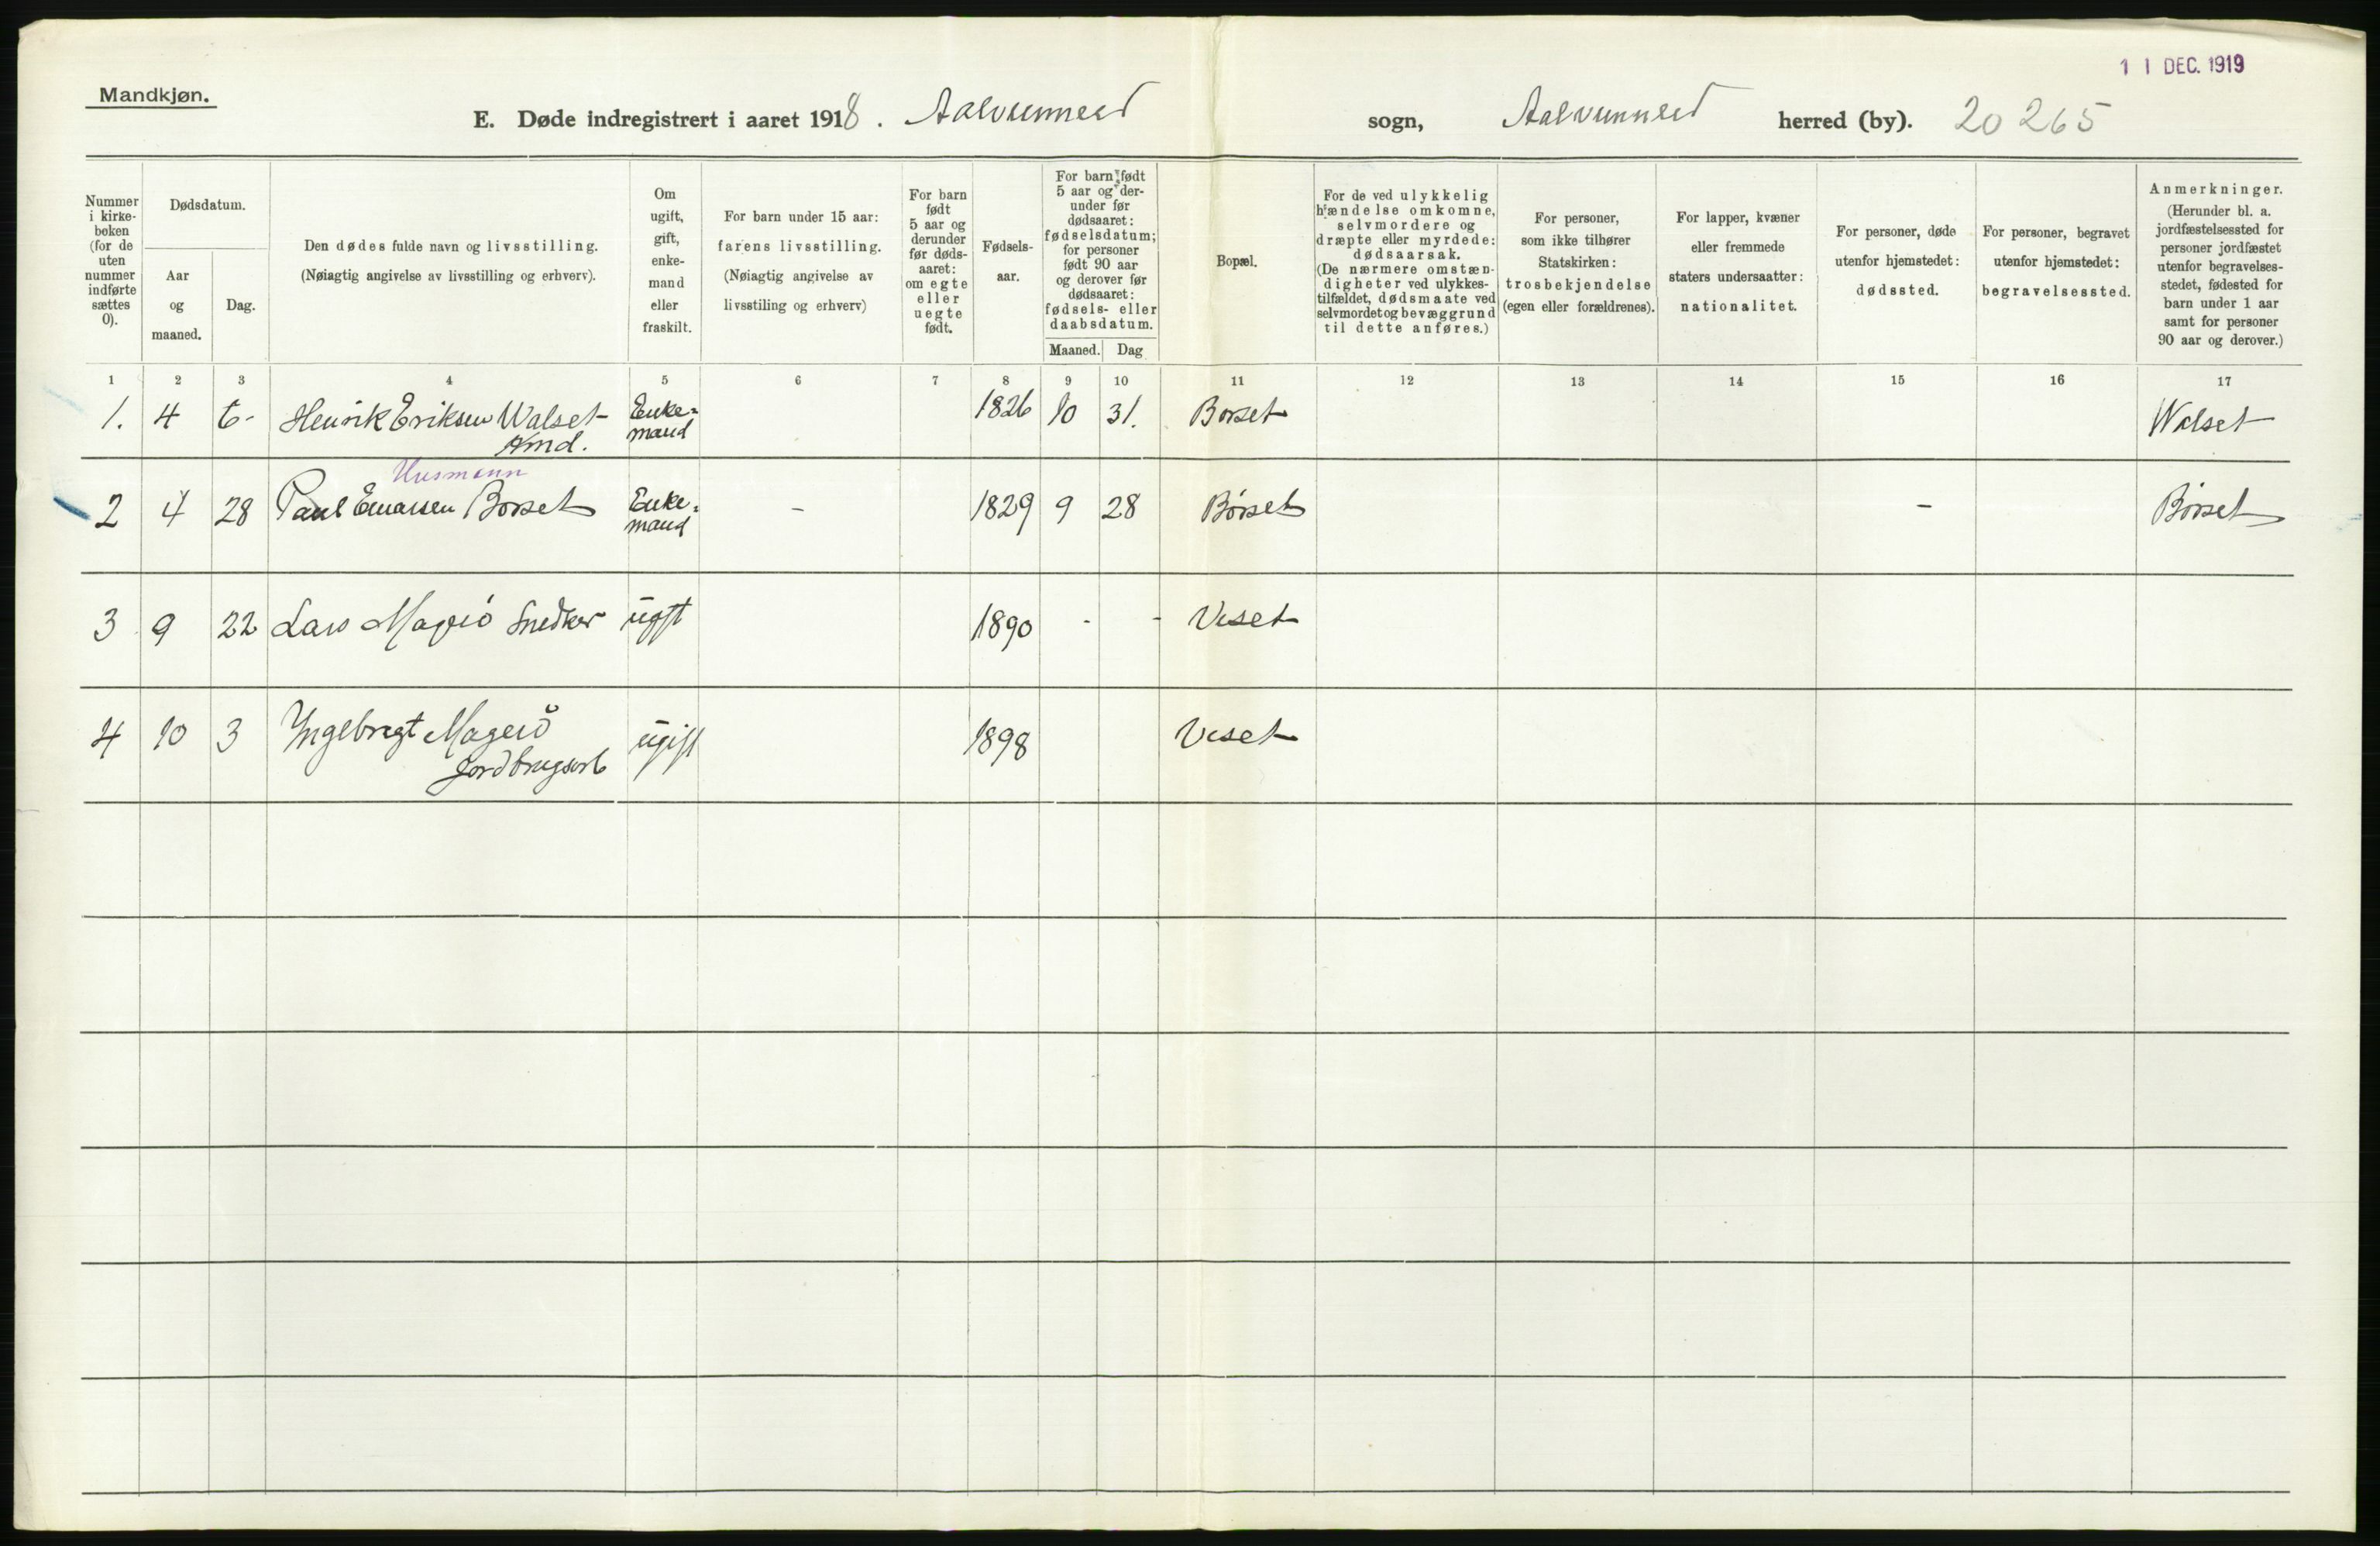 1 1 DEC. 1919
Mandkjøn.
E. Døde indregistrert i aaret 1918. Aalvundeid sogn, Aalvundeid herred (by). 20 265
Nummer i kirkeboken (for de uten nummer indførte sættes 0).
Dødsdatum.
Aar og maaned.
Dag.
Den dødes fulde navn og livsstilling.
(Nøiagtig angivelse av livsstilling og erhverv).
Om ugift, gift, enkemand eller fraskilt.
For barn under 15 aar:
farens livsstilling.
(Nøiagtig angivelse av
livsstiling og erhverv)
For barn født 5 aar og derunder før dødsaaret: om egte eller uegte født.
Fødselsaar.
For barn født 5 aar og derunder før dødsaaret: fødselsdatum; for personer født 90 aar og derover før dødsaaret: fødsels- eller daabsdatum.
Maaned. Dag
Bopæl.
For de ved ulykkelig hændelse omkomne, selvmordere og dræpte eller myrdede: dødsaarsak.
(De nærmere omstændigheter ved ulykkestilfældet, dødsmaate ved selvmordet og bevæggrund til dette anføres.)
For personer,
som ikke tilhører
Statskirken:
trosbekjendelse
(egen eller forældrenes).
For lapper, kvæner
eller fremmede
staters undersaatter:
nationalitet.
For personer, døde
utenfor hjemstedet:
dødssted.
For personer, begravet
utenfor hjemstedet:
begravelsessted.
Anmerkninger.
(Herunder bl. a. jordfæstelsessted for personer jordfæstet utenfor begravelsesstedet, fødested for barn under 1 aar samt for personer 90 aar og derover.)
1 2 3 4 5 6 7 8 9 10 11 12 13 14 15 16 17
1. 4 6- Henrik Eriksen Walset Enke= 1826 10 31. Børset Walset
mand
Husmann
2 4 28 Paul Einarsen Børset Enke= - 1829 9 28 Børset - Børset
mand
3 9 22 Lars Magerö Snedker ugift 1890 - - Veset
4 10 3 Ingebrigt Magerö ugift 1898 Veset
Jordbrugsarb